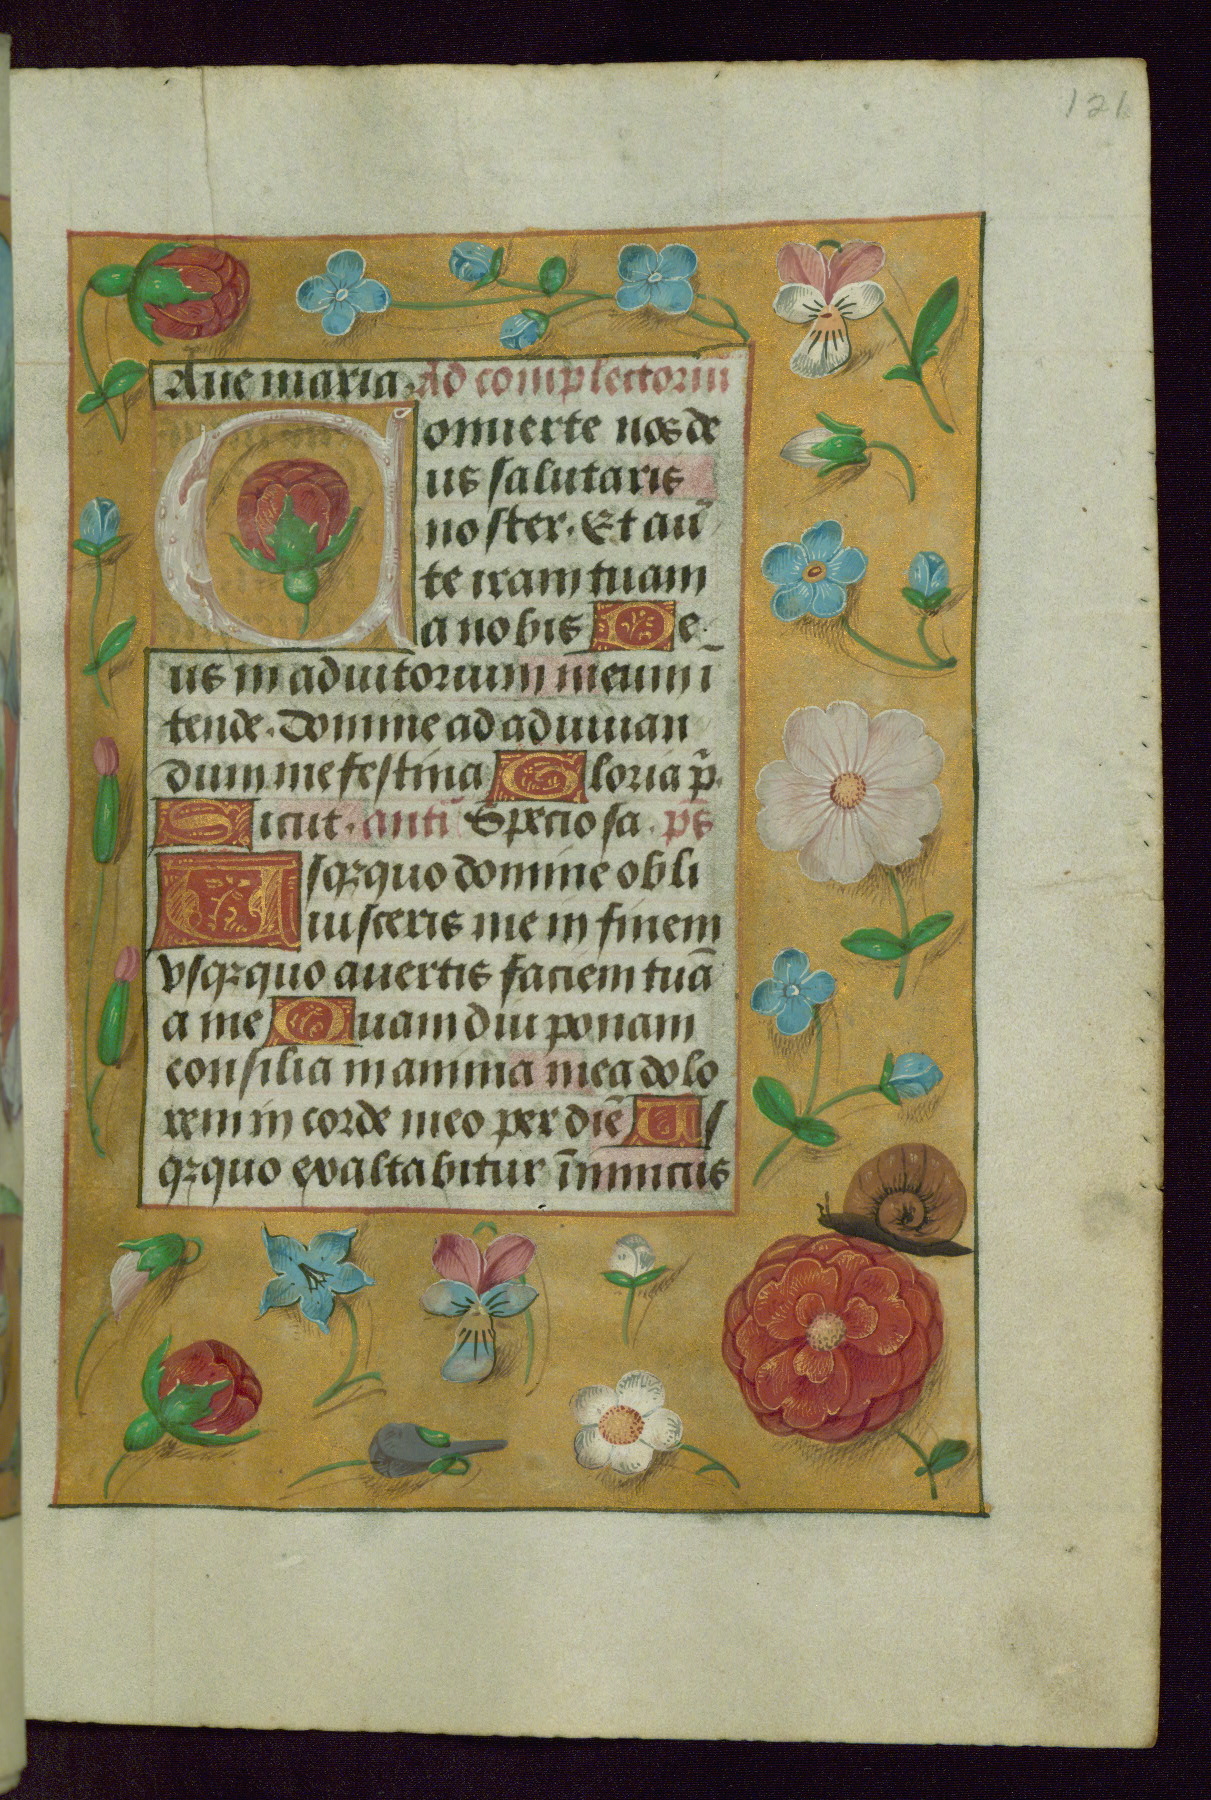 121
Aue maria. Ad completoriu
Conuerte nos de
us salutaris
noster. Et auˀ
te iram tuam
a nobis De
us in adiutorium meum ī
tende. Domine ad adiuuan
dum me festina Gloria p̄.
Sicut. antiˉ Speciosa. ps̄
Usqꝫquo domine obli
uisceris me in finem
vsqꝫquo auertis faciem tuā
a me Quam diu ponam
consilia in anima mea dolo
rem in corde meo per diē Us
qꝫquo exaltabitur īimicus